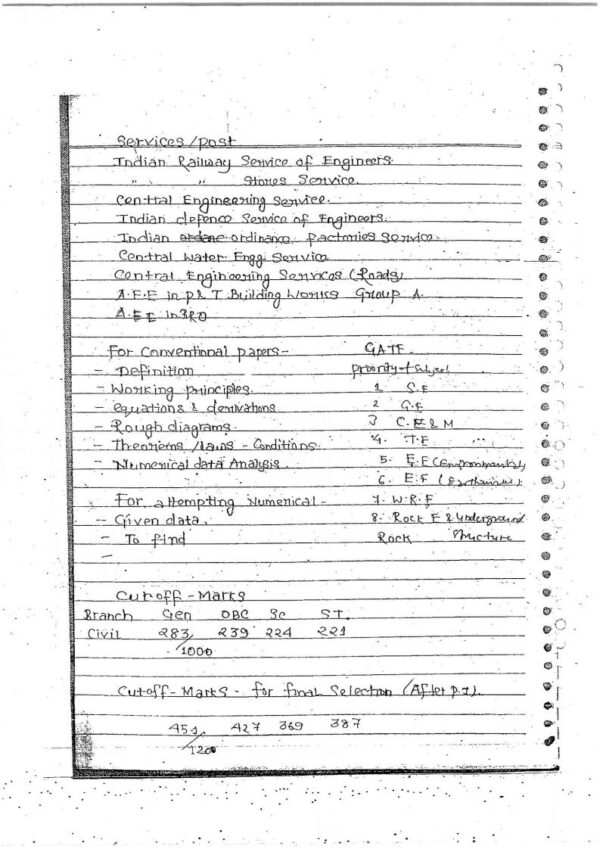 Services/post
Indian Railway Service of Engineers.
" " Stores Service.
Central Engineering Service.
Indian defence Service of Engineers.
Indian ordinance factories Service.
Central Water Engg. Service
Central Engineering Services (Roads)
A.E.E in P & T Building Works Group A.
A.EE in BRO
For Conventional papers - GATE.
- Definition Priority of Subject
- Working principles. 1 S.E
- equations & derivations 2 G.E
- Rough diagrams. 3 C.E & M
- Theorems /laws - Conditions. 4. T.E ...
- Numerical data Analysis. 5. E.E (Environmental)
6. E.E
For attempting Numerical - 7. W.R.E
- Given data. 8. Rock E & Underground
- To find Rock Structure
-
Cutoff - Marks
Branch Gen OBC SC S.T.
Civil 283 239 224 221
/1000
Cutoff - Marks - for final Selection (After P.I).
451 427 369 387
/1200